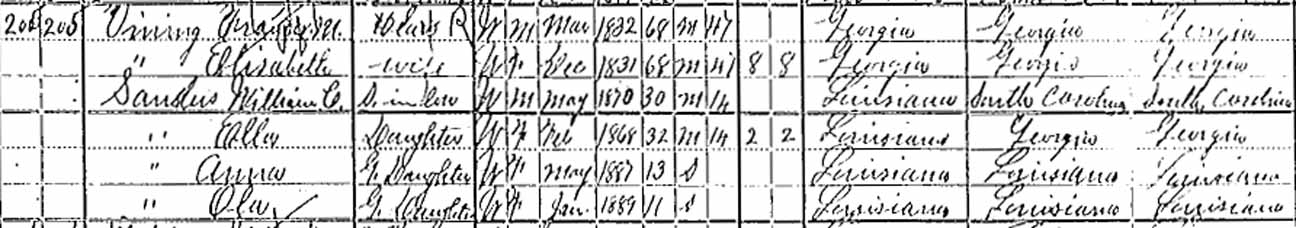 205 205 Vining M. Head W M Mar 1832 68 M 47 Georgia Georgia Georgia
" Elisabeth wife W F Dec 1831 68 M 47 8 8 Georgia Georgia Georgia
Sanders William C. S. in law W M May 1870 30 M 14 Louisiana South Carolina South Carolina
" Ella Daughter W F Feb 1868 32 M 14 2 2 Louisiana Georgia Georgia
" Anna G. Daughter W F May 1887 13 S Louisiana Louisiana Louisiana
" Ola G. Daughter W F Jan 1889 11 S Louisiana Louisiana Louisiana